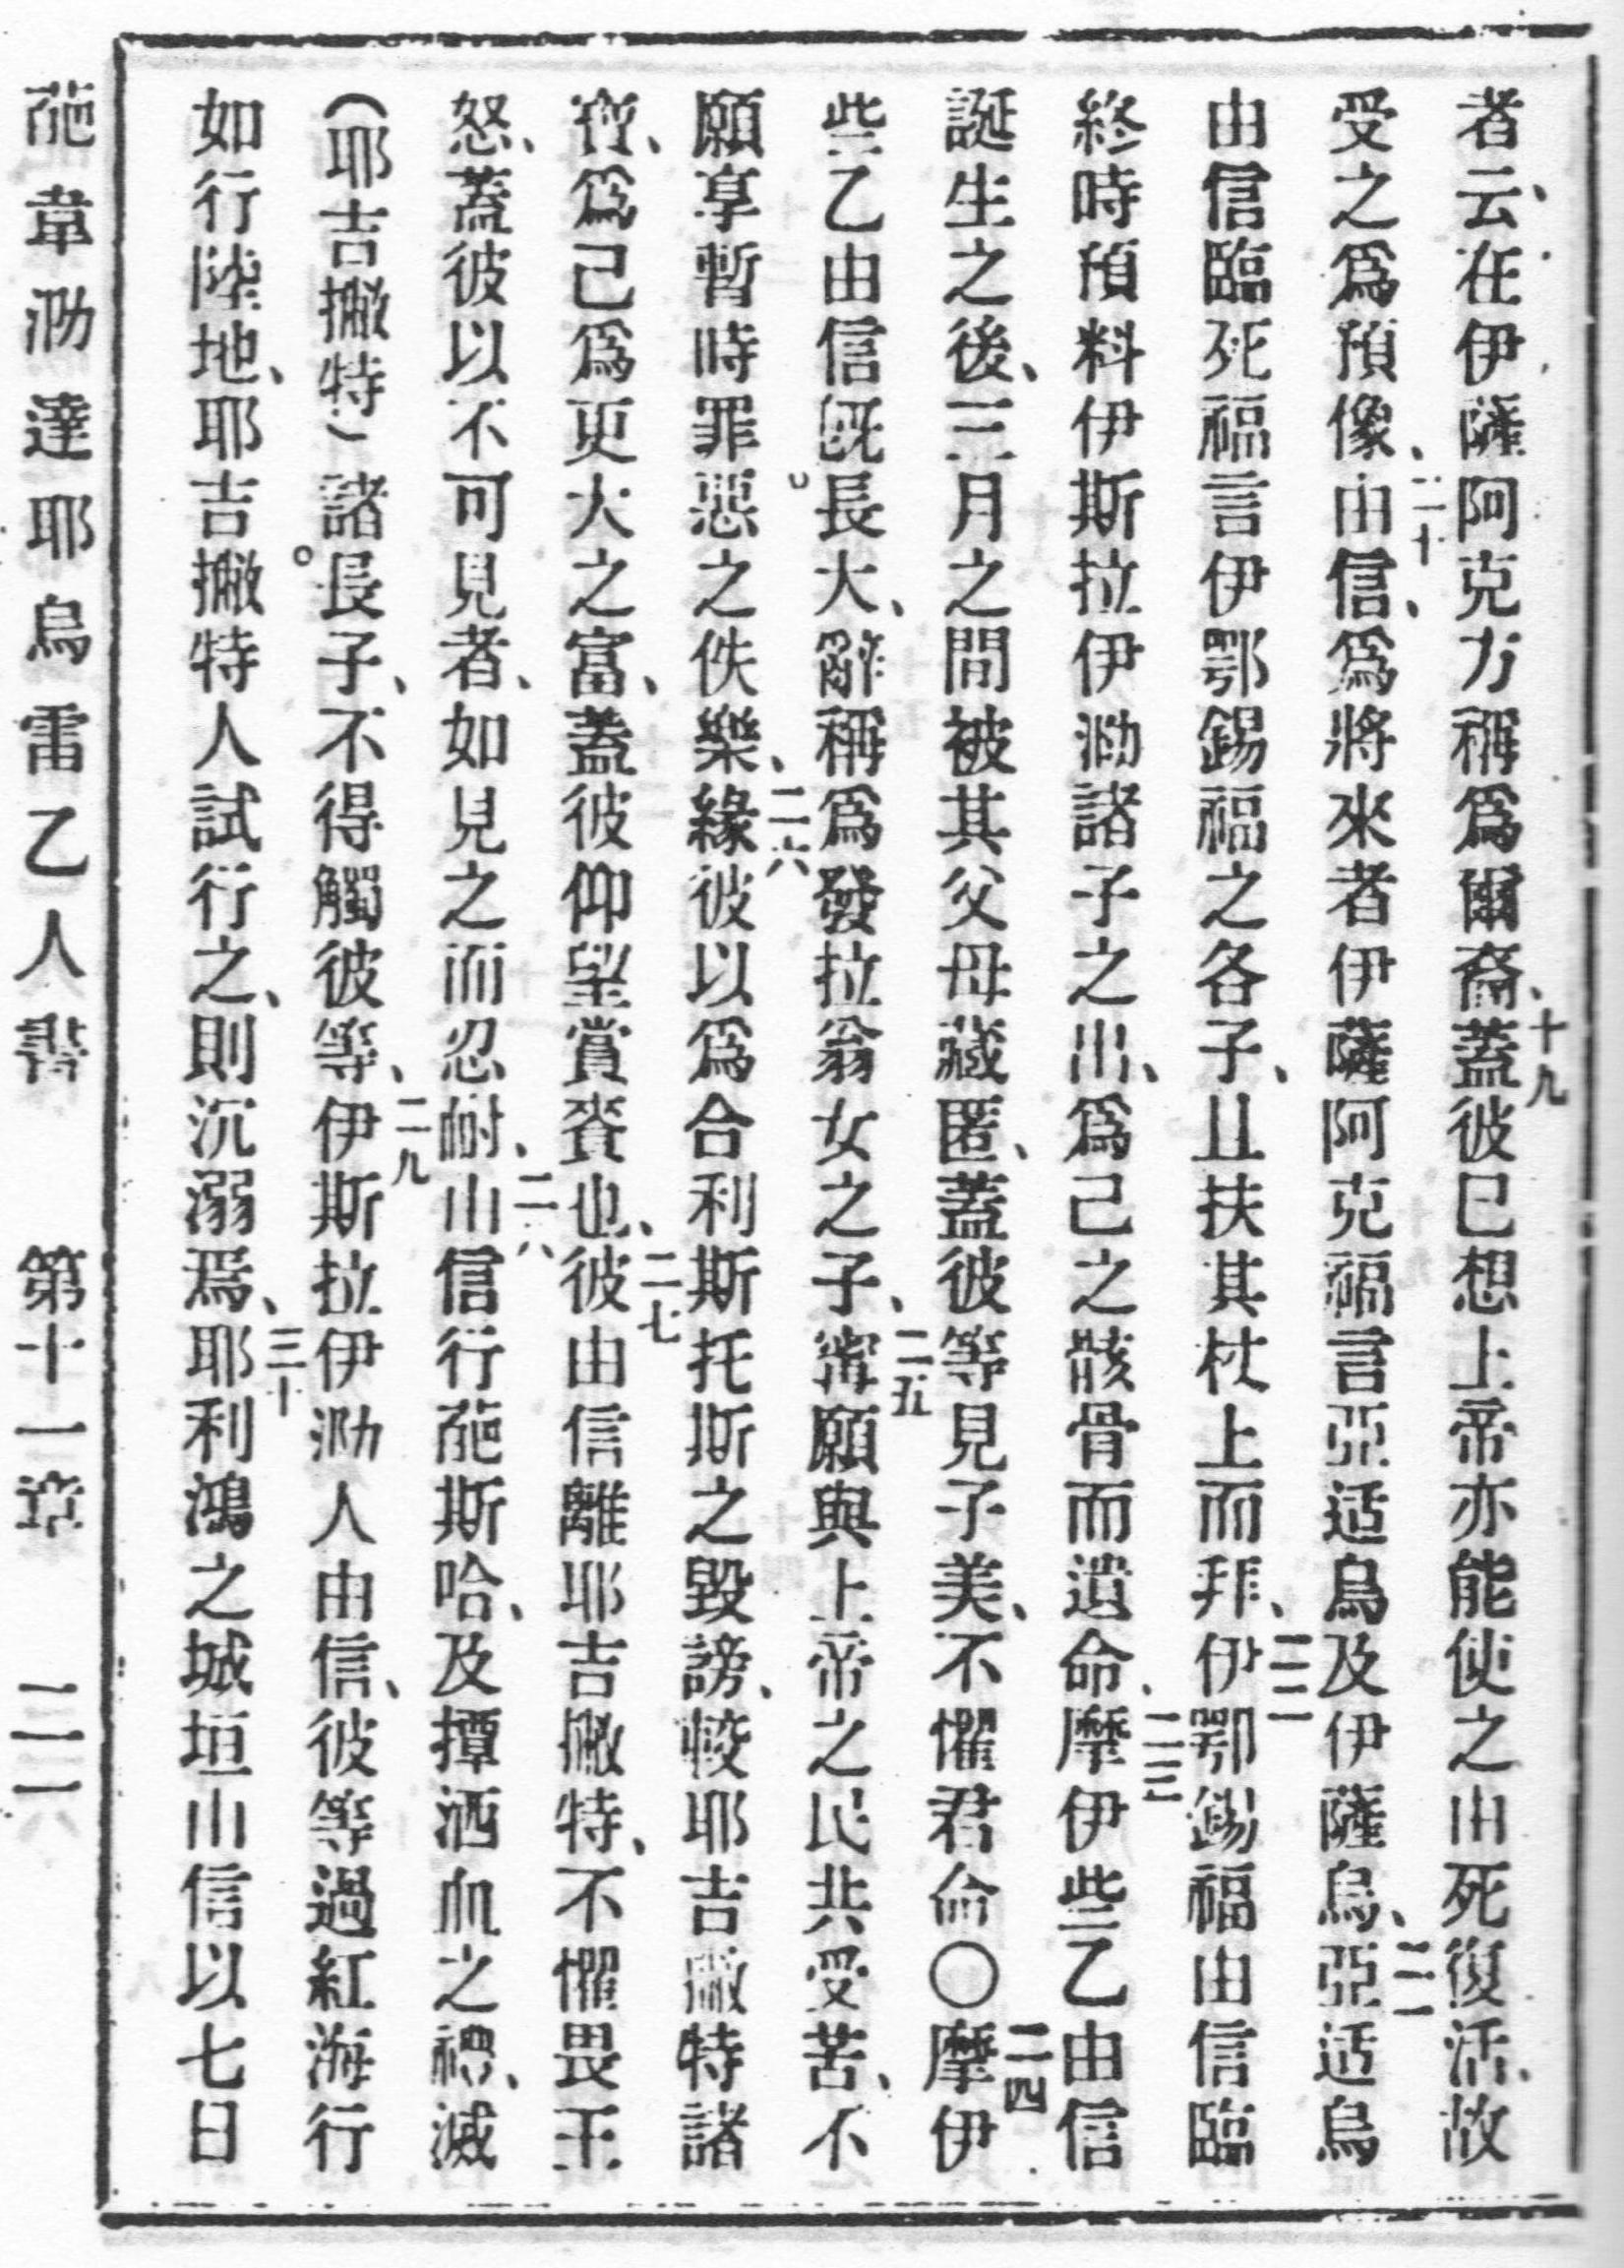 者云、在伊薩阿克方稱爲爾裔、十九蓋彼已想上帝亦能使之由死復活、故
受之爲預像、二十由信、爲將來者伊薩阿克福言亞适烏及伊薩烏、二一亞适烏
由信臨死福言伊鄂錫福之各子、且扶其杖上而拜、二二伊鄂錫福由信臨
終時預料伊斯拉伊泐諸子之出、爲己之骸骨而遺命、二三摩伊些乙由信
誕生之後、三月之間被其父母藏匿、蓋彼等見子美、不懼君命〇二四摩伊
些乙由信旣長大、辭稱爲發拉翁女之子、二五寗願與上帝之民共受苦、不
願享暫時罪惡之佚樂、二六緣彼以爲合利斯托斯之毀謗、較耶吉撇特諸
寶、爲己爲更大之富、蓋彼仰望賞賚也、二七彼由信離耶吉撇特、不懼畏王
怒、蓋彼以不可見者、如見之而忍耐、二八由信行葩斯哈、及撢洒血之禮、滅
（耶吉撇特）諸長子、不得觸彼等、二九伊斯拉伊泐人由信、彼等過紅海行
如行陸地、耶吉撇特人試行之、則沉溺焉、三十耶利鴻之城垣由信以七日
葩韋泐達耶烏雷乙人書 第十一章 二一